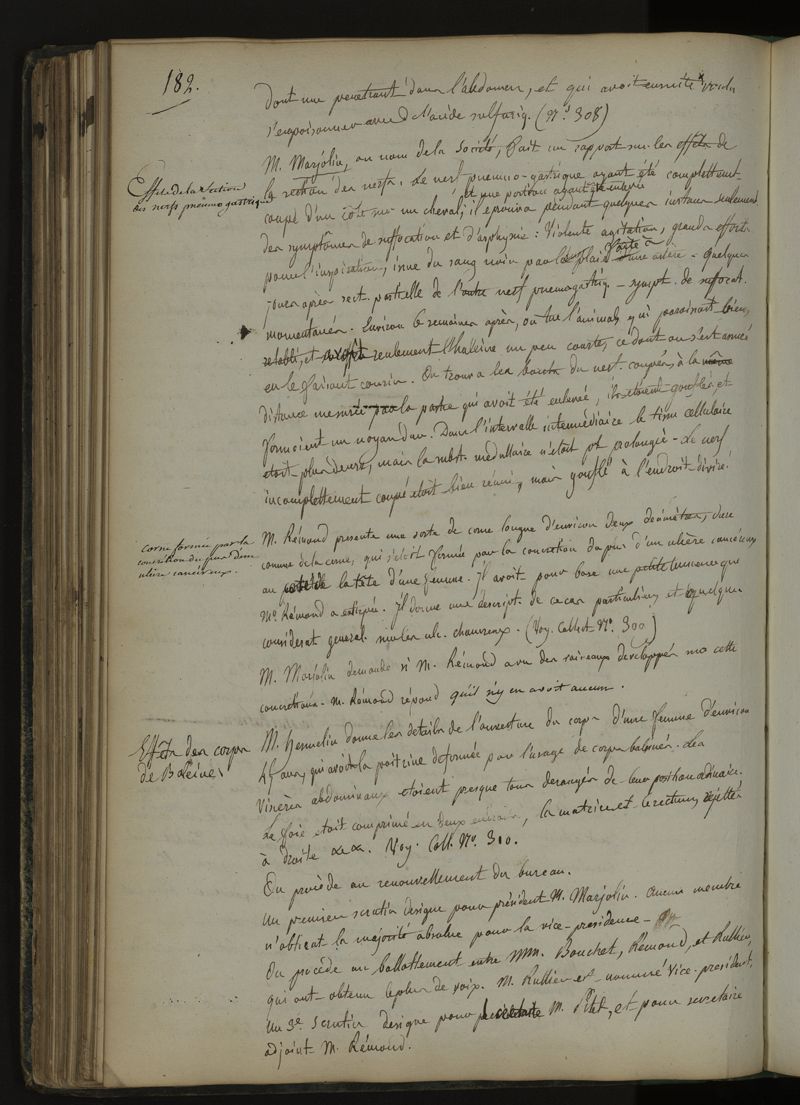 182.
dont une penetrant dans l'abdomen, et qui avoit ensuite voulu
s'empoisonner avec l'acide sulfuriq. (n°. 308)
Effets de la Section
des nerfs pneumo gastriq.
M. Marjolin, au nom de la Société, fait un rapport sur les effets de
la section des nerfs. Le nerf pneumo-gastrique ayant été complettement
et une portion ayant été enlevée
coupé d'un côté sur un cheval, il éprouva pendant quelques instans seulement
des symptômes de suffocation et d'asphyxie : Violente agitation, grands efforts
pour l'inspiration, issue du sang noir par la plaie d'une artère - Quelques
jours après sect. partielle de l'autre nerf pneumogastriq. - sympt. de suffocat.
momentanés. Environ 6 semaines après, on tue l'animal, qui paroissait bien
rétabli, et avoit seulement l'haleine un peu courte, ce dont on s'est assuré
en le faisant courir. On trouva les bouts du nerf coupés, à la même
distance mesurée par la partie qui avoit été enlevée, ils étoient gonflés, et
formoient un noyau dur. Dans l'intervalle intermédiaire le tissu cellulaire
étoit plus dense, mais la subst. médullaire n'étoit pt prolongée - Le nerf
incomplettement coupé étoit bien réuni, mais gonflé à l'endroit divisé.
corne formée par la
concrétion du pus d'un
ulcère cancéreux.
M. Rémond presente une sorte de corne longue d'environ deux
comme de la corne, qui s'étoit formée par la concrétion du pus d'un ulcère cancéreux
au la tête d'une femme. Il avoit pour base une petite que
Mr. Rémond a extirpée. Il donne une descript. de ce cas particulier, et quelques
considerat. general. sur les ulc. chancreux. (Voy. Collect. N°. 300)
M. Marjolin demande si M. Rémond a vu des vaisseaux developpés sous cette
concrétion. M. Rémond répond qu'il n'y en avoit aucun.
Effets des corps
de Baleine
M. Hennelin donne les détails de l'ouverture du corps d'une femme d'environ
ans, qui avoit la poitrine deformée par l'usage de corps baleinés. Les
Viscères abdominaux etoient presque tous derangés de leur position ordinaire.
Le foie etoit comprimé en deux, la matrice et le rectum rejettés
à droite &a &a. Voy. Coll. N°. 310.
On procède au renouvellement du bureau.
Un premier scrutin désigne pour président M. Marjolin. Aucun membre
n'obtient la majorité absolue pour la vice-présidence -
On procède au ballottement entre MM. Bouchet, Rémond, et Rullier,
qui ont obtenu le plus de voix. M. Rullier est nommé Vice-président,
Un 3e. Scrutin designe pour M. Petit, et pour secretaire
adjoint M. Rémond.